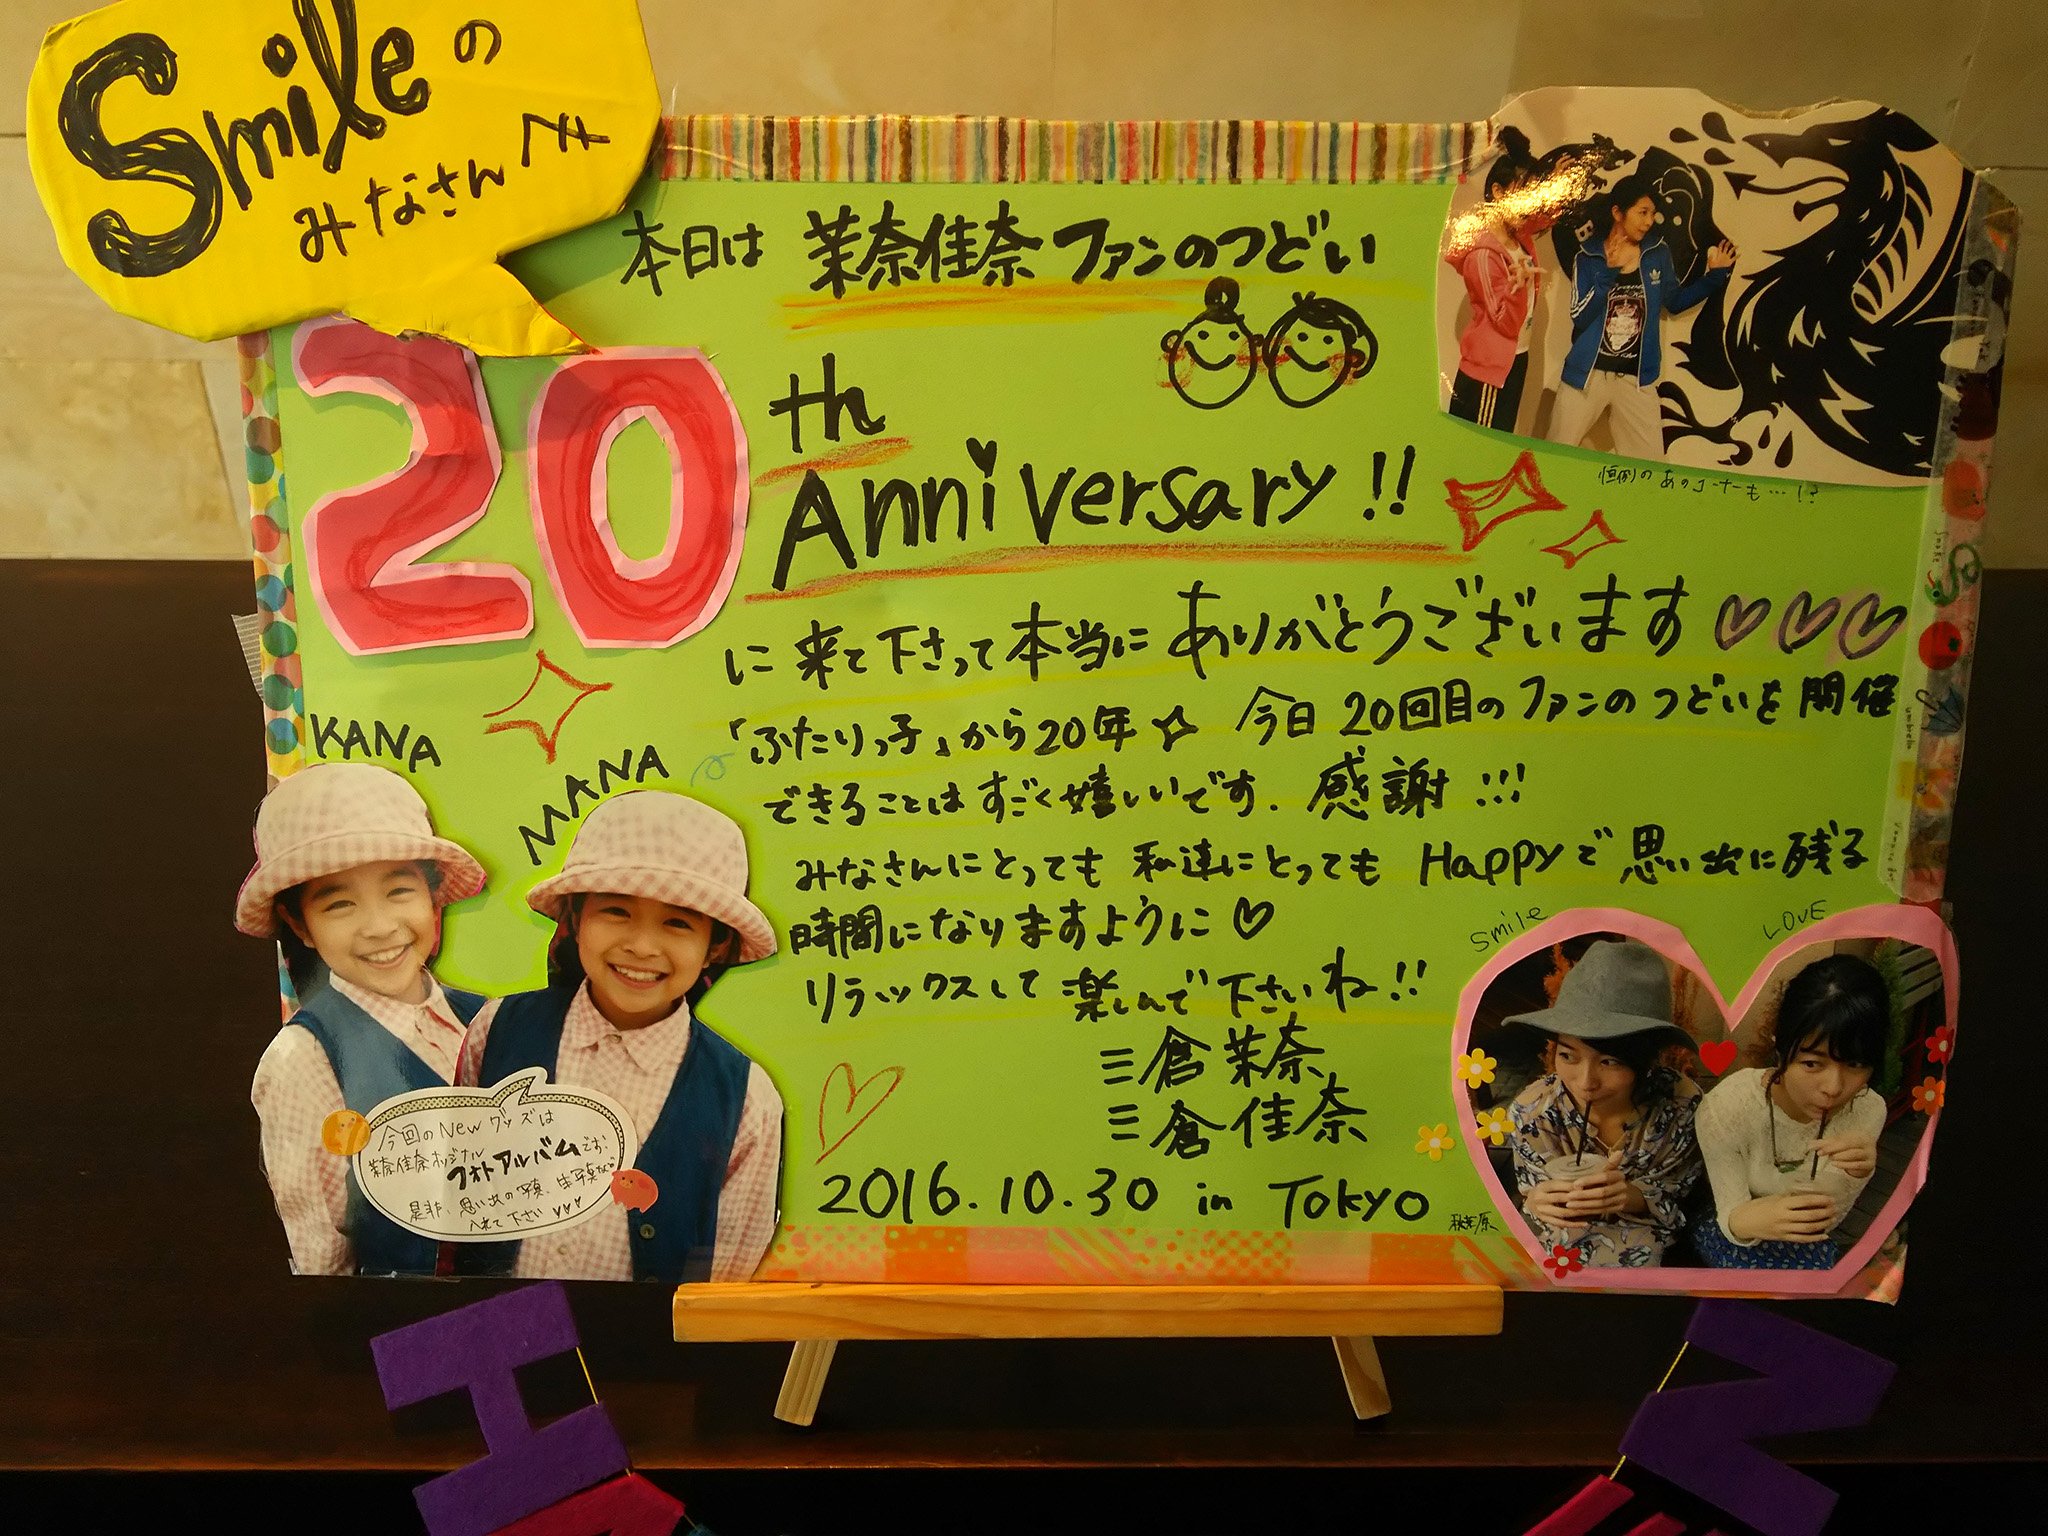 Smileの
みなさんへ
本日は 茉奈佳奈ファンのつどい
20th
Anniversary!!
に来て下さって本当にありがとうございます♡♡♡
「ふたりっ子」から20年☆ 今日20回目のファンのつどいを開催
できることはすごく嬉しいです. 感謝!!!
みなさんにとっても 私達にとっても Happyで思い出に残る
時間になりますように♡
リラックスして 楽しんで下さいね!!
三倉 茉奈
三倉 佳奈
2016.10.30 in Tokyo
秋葉原
恒例のあのコーナーも…!?
KANA
MANA
今回のNewグッズは
茉奈佳奈オリジナル
フォトアルバムです.
是非、思い出の写真、生写真など
入れて下さい♡♡♡
smile
LOVE
Snake
H
N